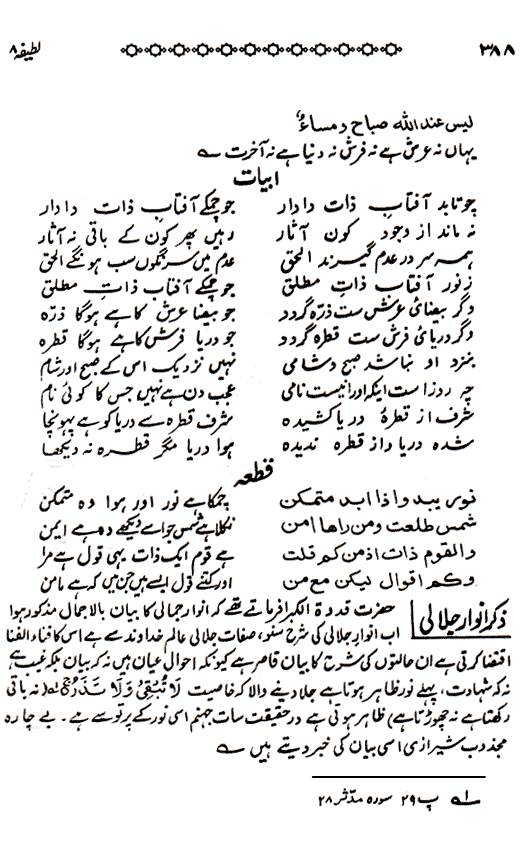 ۳۸۸ لطیفہ ۸
لیس عند اللہ صباح و مساءُ
یہاں نہ عرش ہے نہ فرش نہ دنیا ہے نہ آخرت ؎
ابیات
چو تابد آفتابِ ذات دادار جو چمکے آفتابِ ذات دادار
نہ ماند از وجود کون آثار رہیں پھر کون کے باقی نہ آثار
ہمہ سر در عدم گیرند الحق عدم میں سرنگوں سب ہونگے الحق
ز نور آفتاب ذاتِ مطلق جو چمکے آفتاب ذاتِ مطلق
دگر بیضائی عرش ست ذرّہ گردد جو بیضا عرش کا ہے ہوگا ذرّہ
دگر دریائی فرش ست قطرہ گردد جو دریا فرش کا ہے ہوگا قطرہ
بنزد او نباشد صبح و شامی نہیں نزدیک اس کے صبح اور شام
چہ روز است اینکہ او را نیست نامی عجب دن ہے نہیں جس کا کوئی نام
شرف از قطرۂ دریا کشیدہ شرف قطرہ سے دریا کو ہے پہونچا
شدہ دریا و از قطرہ ندیدہ ہوا دریا مگر قطرہ نہ دیکھا
قطعہ
نور یبد واذا ابد متمکن چمکا ہے نور اور ہوا وہ متمکن
شمس طلعت ومن راها امن نکلا ہے شمس جو اسے دیکھے وہ ہے ایمن
والقوم ذات اذ من کم قلت ہے قوم ایک ذات یہی قول ہے مرا
وکم اقوال لیکن مع من اور کتنے قول ایسے ہیں جن میں کہ ہے مامن
ذکر انوار جلالی حضرت قدوۃ الکبرا فرماتے تھے کہ انوار جمالی کا بیان بالاجمال مذکور ہوا
اب انوارِ جلالی کی شرح سنو، صفات جلالی عالم خداوند سے ہے اس کا فناء الفنا
اقتضا کرتی ہے ان حالتوں کی شرح کا بیان قاصر ہے کیونکہ احوالِ عیان ہیں نہ کہ بیان بلکہ غیب ہے
نہ کہ شہادت، پہلے نور ظاہر ہوتا ہے جلا دینے والا کہ خاصیت لَا تُبْقِیْ وَلَا تَذَرُ ؕ (نہ باقی
رکھتا ہے نہ چھوڑتا ہے) ظاہر ہوتی ہے درحقیقت سات جہنم اسی نور کے پرتو سے ہے۔ بے چارہ
مجذوب شیرازی اسی بیان کی خبر دیتے ہیں ؎
؎۱ پ ۲۹ سورہ مدّثر ۲۸